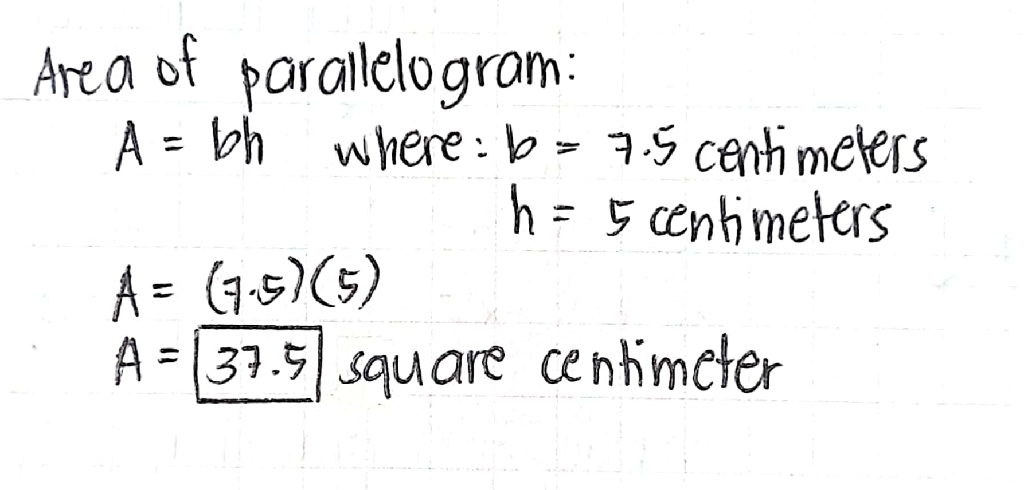 Area of parallelogram:
A = bh where: b = 7.5 centimeters
h = 5 centimeters
A = (7.5)(5)
A = 37.5 square centimeter